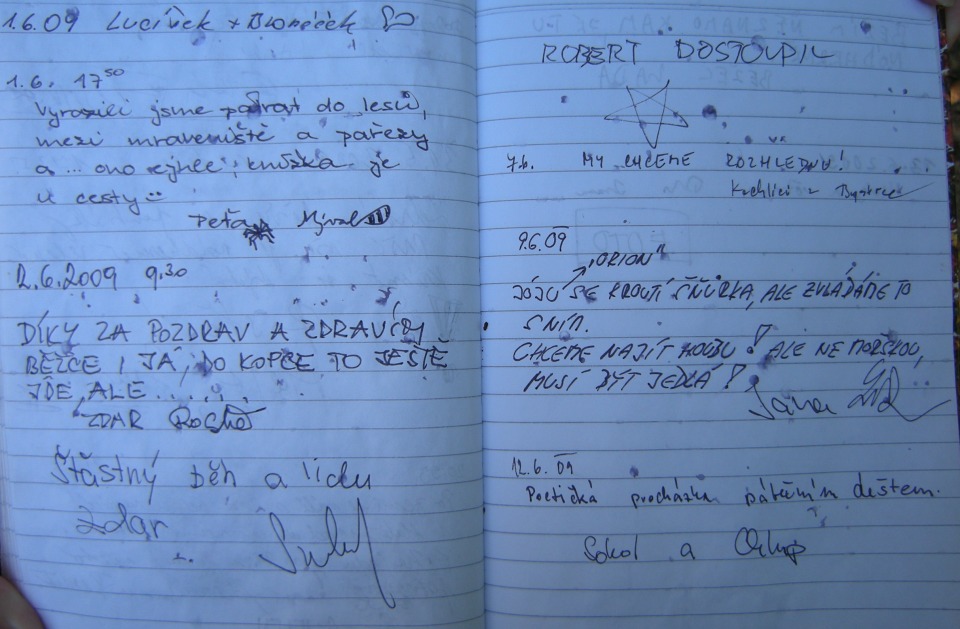 1.6.09 Lucísek + Broněček
1.6. 17⁵⁰
Vyrazili jsme pařrat do lesů,
mezi mraveniště a pařezy
a ... ono ejhle, knížka je
u cesty
Peťa
2.6.2009 9.30
DÍKY ZA POZDRAV A ZDRAVÍM
BĚŽCE I JÁ, DO KOPCE TO JEŠTĚ
JDE, ALE .......
ZDAR
Šťastný běh a lidu
zdar
ROBERT DOSTOUPIL
7.6. MY CHCEME ROZHLEDNU!
z Bystrce
9.6.09
"ORION"
JÓJO SE KROUTÍ ŠŇŮRKA, ALE ZVLÁDÁME TO
S NÍM.
CHCEME NAJÍT HOUBU! ALE NE MOŘSKOU,
MUSÍ BÝT JEDLÁ!
Jana
12.6.09
Poetická procházka pátečním deštem.
Sokol a